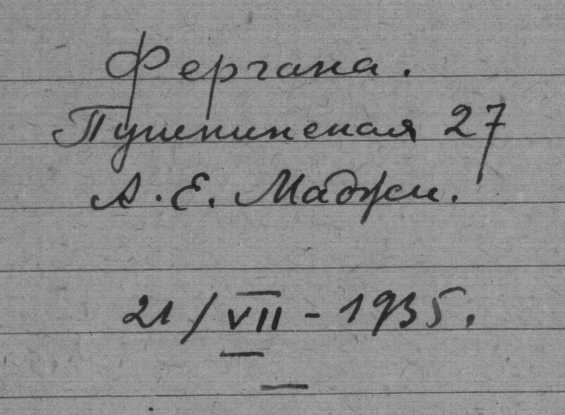 Фергана.
Пушкинская 27
А. Е. Маджи.
21/VII - 1935.